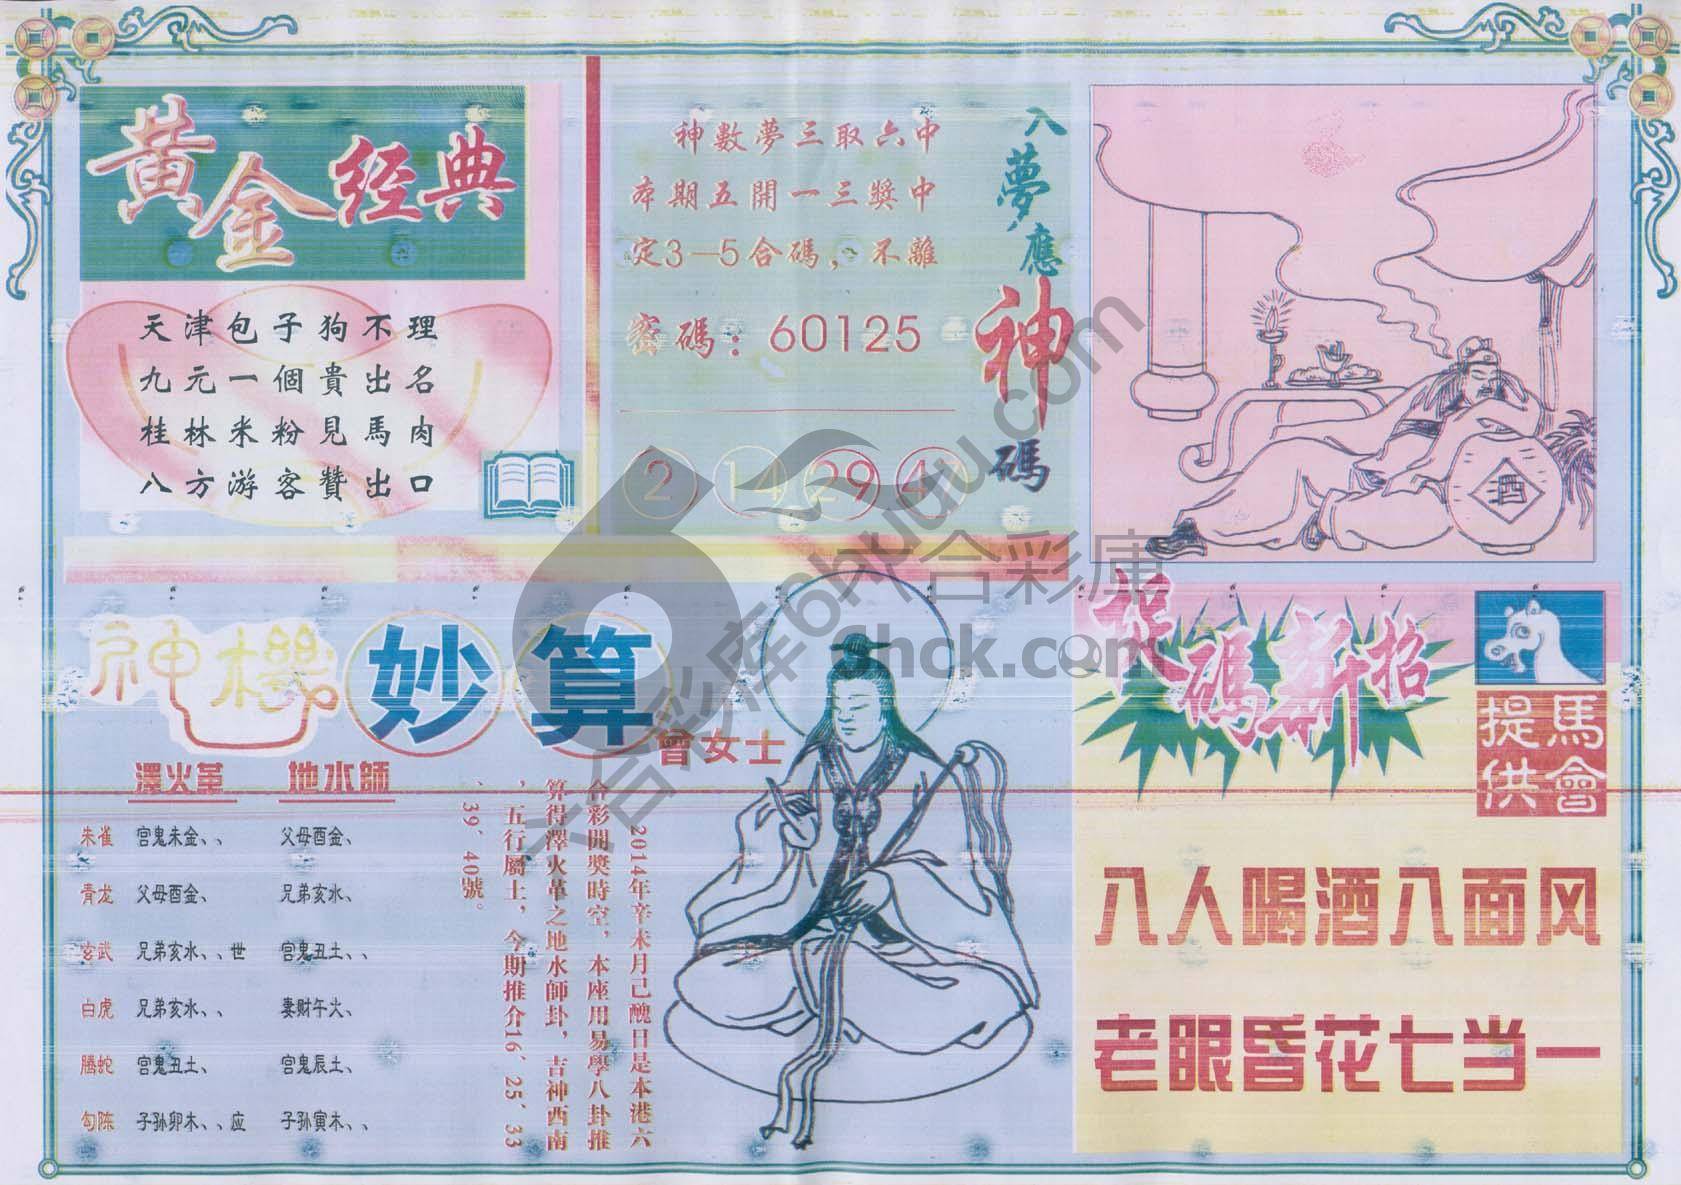 黄金经典
天津包子狗不理
九元一個貴出名
桂林米粉見馬肉
八方游客贊出口
神數夢三取六中
本期五開一三獎中
定3—5合碼，不離
密碼：60125
2 14 29 47
入夢應神碼
酒
神機妙算
曾女士
澤火革 地水師
朱雀 官鬼未金、、 父母酉金、
青龙 父母酉金、 兄弟亥水、
玄武 兄弟亥水、、世 官鬼丑土、、
白虎 兄弟亥水、、 妻财午火、
騰蛇 官鬼丑土、 官鬼辰土、
勾陈 子孙卯木、、应 子孙寅木、、
2014年辛未月己醜日是本港六
合彩開獎時空，本座用易學八卦推
算得澤火革之地水師卦，吉神西南
，五行屬土，今期推介16、25、33
、39、40號。
捉碼新招
馬會提供
八人喝酒八面风
老眼昏花七当一
六合彩库6hpudu.com
六合彩庫
5hck.com